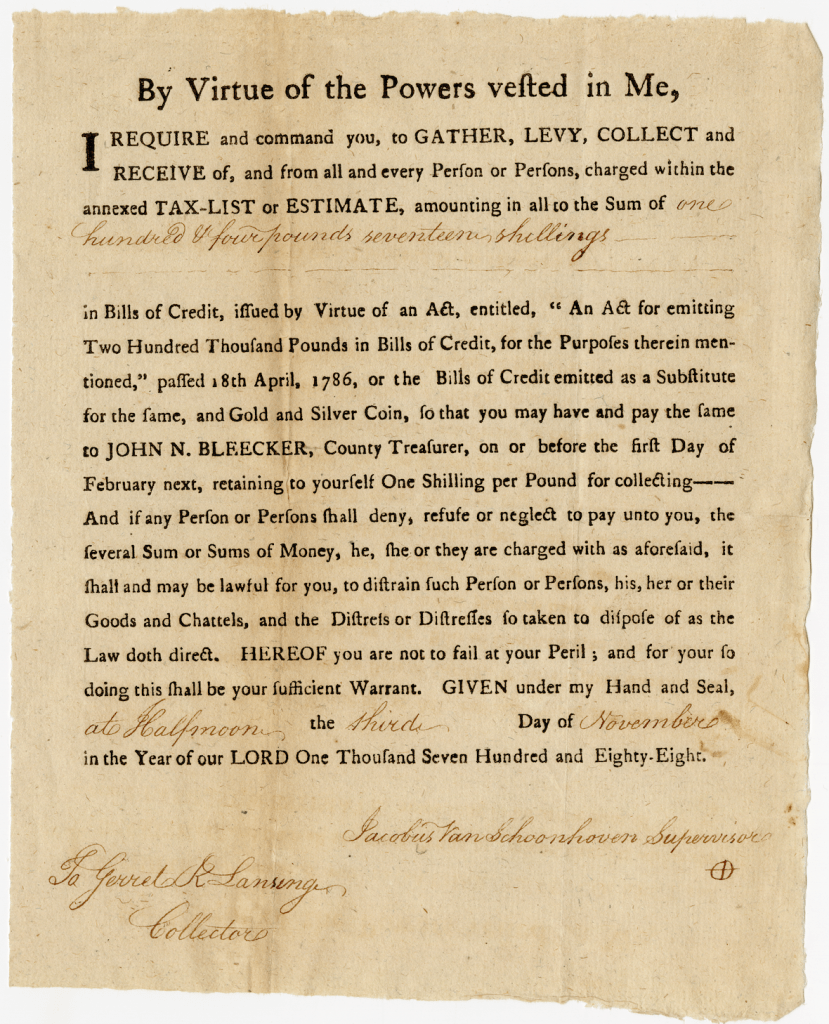 By Virtue of the Powers veſted in Me,
I REQUIRE and command you, to GATHER, LEVY, COLLECT and
RECEIVE of, and from all and every Perſon or Perſons, charged within the
annexed TAX-LIST or ESTIMATE, amounting in all to the Sum of one
hundred & four pounds seventeen shillings
in Bills of Credit, iſſued by Virtue of an Act, entitled, “ An Act for emitting
Two Hundred Thouſand Pounds in Bills of Credit, for the Purpoſes therein men-
tioned,” paſſed 18th April, 1786, or the Bills of Credit emitted as a Subſtitute
for the ſame, and Gold and Silver Coin, ſo that you may have and pay the ſame
to JOHN N. BLEECKER, County Treaſurer, on or before the firſt Day of
February next, retaining to yourſelf One Shilling per Pound for collecting——
And if any Perſon or Perſons ſhall deny, refuſe or neglect to pay unto you, the
ſeveral Sum or Sums of Money, he, ſhe or they are charged with as aforeſaid, it
ſhall and may be lawful for you, to diſtrain ſuch Perſon or Perſons, his, her or their
Goods and Chattels, and the Diſtreſs or Diſtreſſes ſo taken to diſpoſe of as the
Law doth direct. HEREOF you are not to fail at your Peril ; and for your ſo
doing this ſhall be your ſufficient Warrant. GIVEN under my Hand and Seal,
at Halfmoon the third Day of November
in the Year of our LORD One Thouſand Seven Hundred and Eighty-Eight.
Jacobus Van Schoonhoven Supervisor
To Gerret R Lansing
Collector